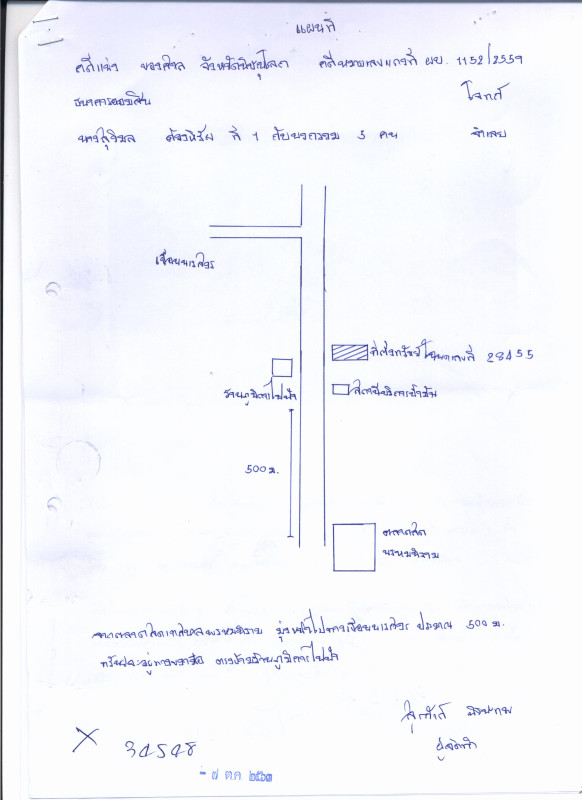 แผนที่
คดีแพ่ง ของศาล จังหวัดพิษณุโลก คดีหมายเลขแดงที่ ผบ. 1152/2559
ธนาคารออมสิน โจทก์
ที่ 1 กับพวกรวม 5 คน จำเลย
เขื่อนนเรศวร
ที่ตั้งทรัพย์โฉนดเลขที่ 28455
สถานีบริการน้ำมัน
500 ม.
ตลาดสด
พรหมพิราม
จากตลาดสดเทศบาลพรหมพิราม มุ่งหน้าไปทางเขื่อนนเรศวร ประมาณ 500 ม.
ทรัพย์จะอยู่ทางขวามือ
ผู้จัดทำ
34548
- ๗ ต.ค. ๒๕๖๓